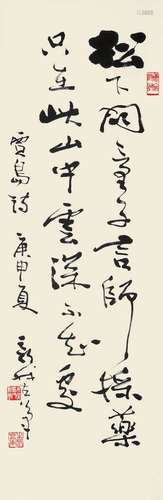 松下問童子言師採藥
只在此山中雲深不知處
賈島詩 庚申夏